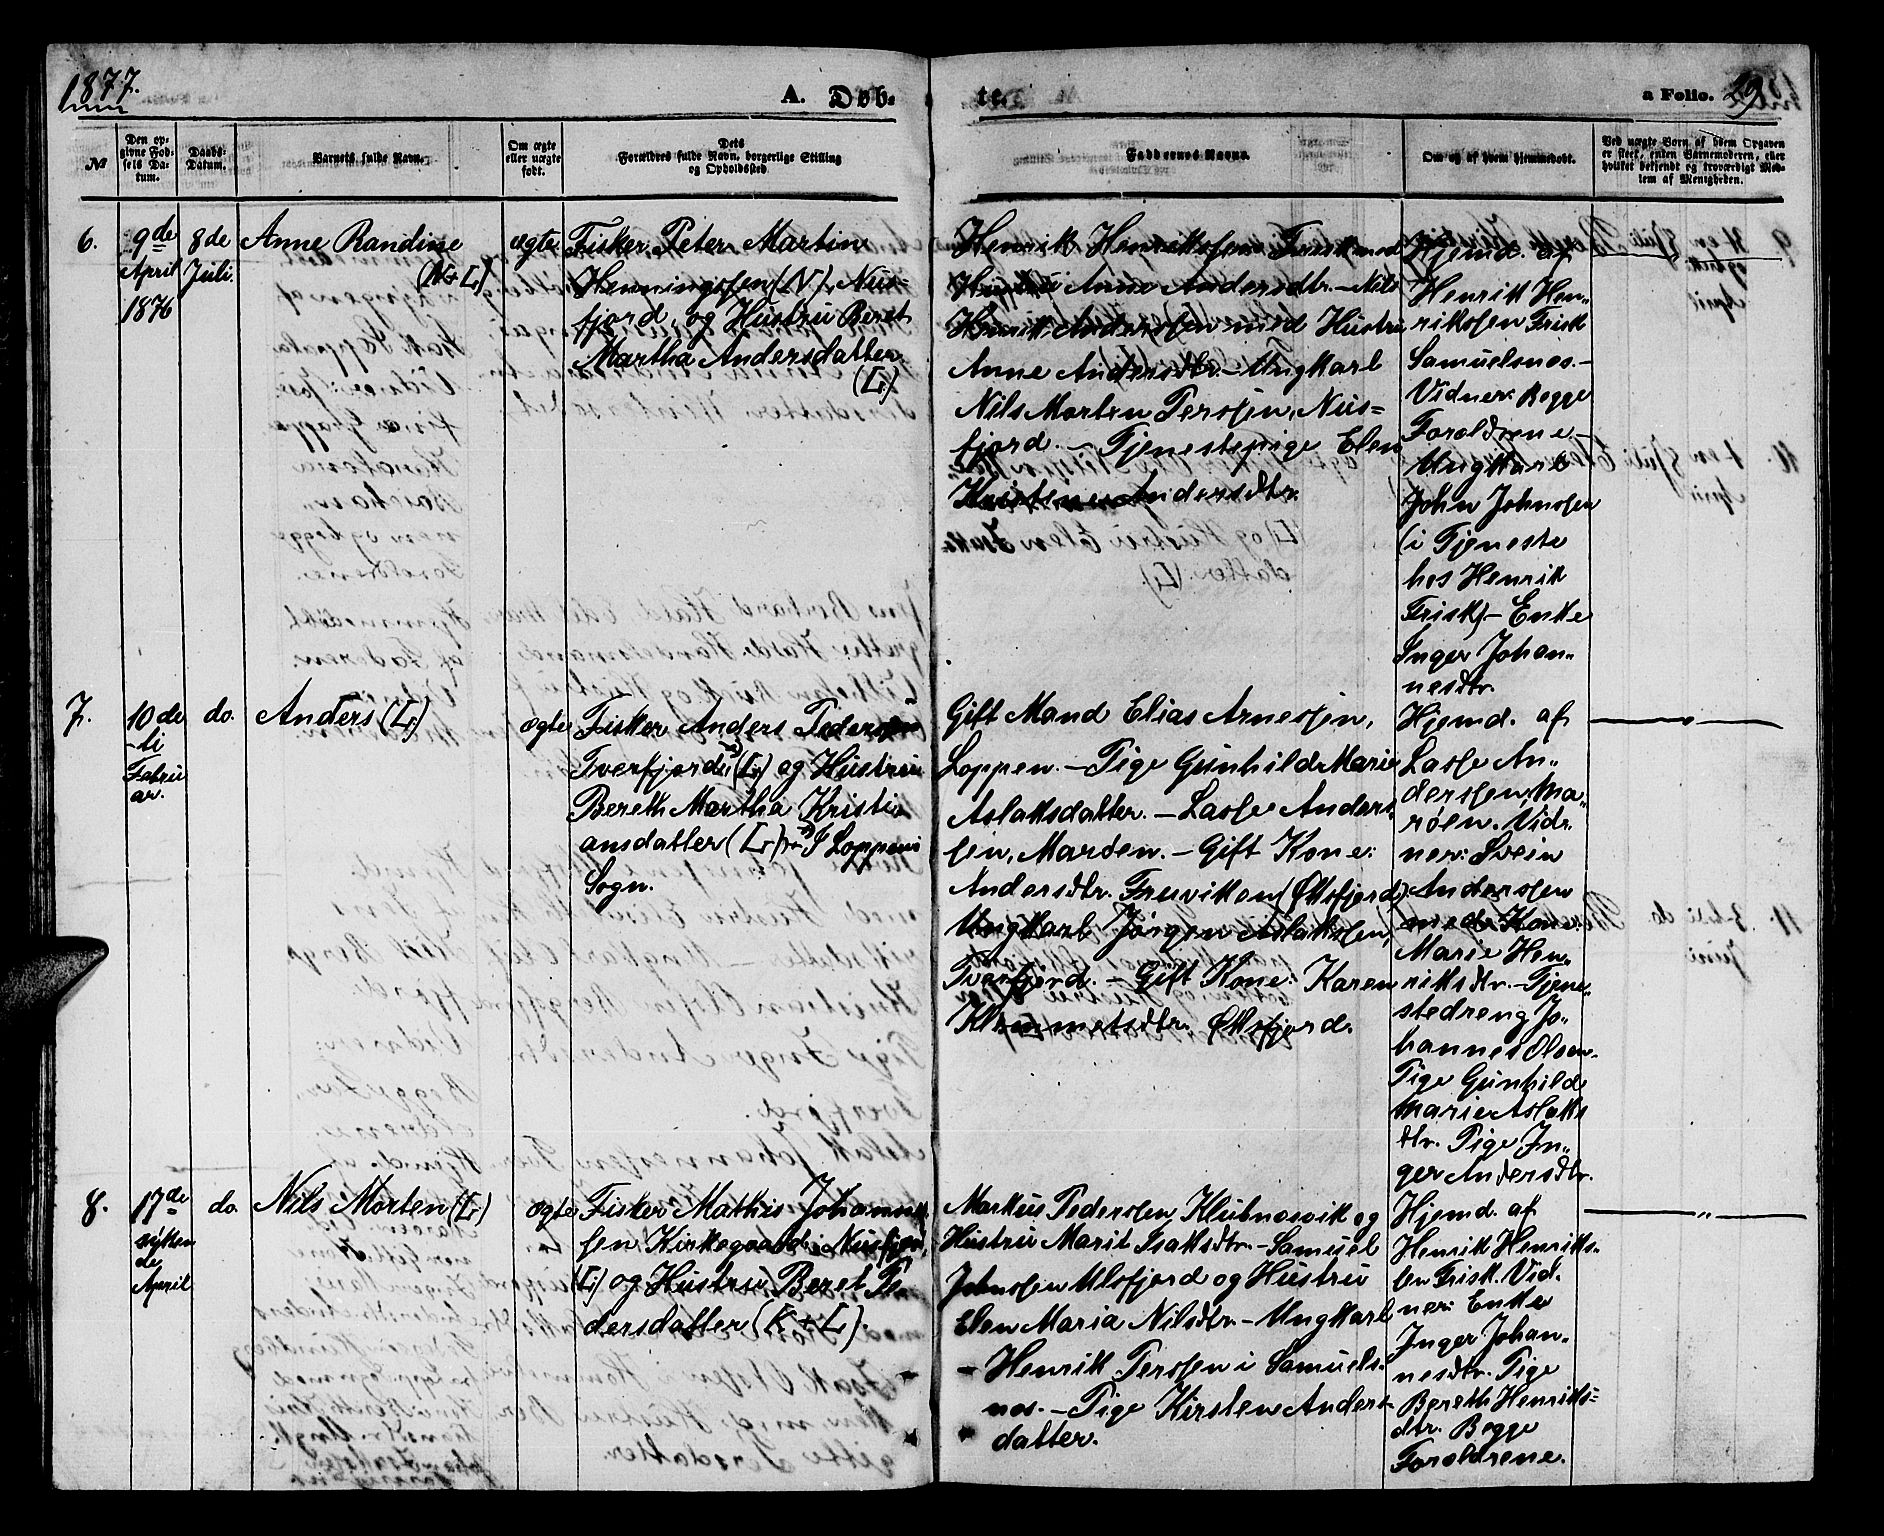 1877.
A. Døb-
te.
a Folio. 29
№
Den op-
givne Fød-
sels Da-
tum.
Daabs-
Datum.
Barnets fulde Navn.
Om ægte
eller uægte
født.
Dets
Forældres fulde Navn, borgerlige Stilling
og Opholdssted.
Faddernes Navne.
Om og af hvem hjemmedøbt.
Ved uægte Børn af hvem Opgaven
er skeet, enten Barnemoderen, eller
hvilket bekjendt og troværdigt Med-
lem af Menigheden.
6.
9de
April
1876
8de
Juli.
Anne Randine
(N+L)
ægte
Fisker Peter Martin
Henningssen (N), Nus-
fjord, og Hustru Beret
Martha Andersdatter.
(L)
Henrik Henriksen Frisk med
Hustru Anne Andersdtr. - Nils
Henrik Anderssen med Hustru
Anne Andersdtr. - Ungkarl
Nils Morten Perssen, Nus-
fjord. - Tjenestepige Elen
Kristine Andersdtr.
Hjemd. af
Henrik Hen-
riksen Frisk
Samuelsnes. -
Vidner: Begge
Forældrene -
Ungkarl
John Johnsen
(i Tjeneste
hos Henrik
Frisk) - Enke
Inger Johan-
nesdtr.
7.
10de
-ti
Februar
ar.
do.
Anders (L)
ægte
Fisker Anders Pedersen
Tverfjord (L) og Hustru
Bereth Martha Kristi-
ansdatter (L) I Loppens
Sogn.
Gift Mand Elias Arnessen,
Loppen. - Pige Gunhild Marie
Aslaksdatter. - Lasse Anders-
sen, Marøen. - Gift Kone:
Andersdtr. Fruvikken (Øksfjord)
Ungkarl Jørgen Aslaksen,
Tverfjord. - Gift Kone: Karen
Klemmetsdtr. Øksfjord.
Hjemd. af
Lasse An-
derssen, Ma-
røen. Vid-
ner: Svein
Anderssen
med Kone
Marie Hen-
riksdtr. - Tjene-
stedreng Jo-
hannes Olsen.
Pige Gunhild
Marie Aslaks
dtr. Pige In-
ger Andersdtr.
8.
17de
sytten
de
April
do.
Nils Morten (L)
ægte
Fisker Mathis Johannes
sen Kirkegaard i Nusfjord,
(L) og Hustru Beret Pe-
dersdatter (K+L).
Markus Pederssen Klubnesvik og
Hustru Marit Isaksdtr. - Samuel
Johnsen Ulsfjord og Hustru
Elen Maria Nilsdtr. - Ungkarl
- Henrik Perssen i Samuels-
nes. - Pige Kirsten Anders-
datter.
Hjemd. af
Henrik Henriks-
sen Frisk. Vid-
ner: Enke
Inger Johan-
nesdtr. Pige
Bereth Henriks-
dtr. Begge
Forældrene.